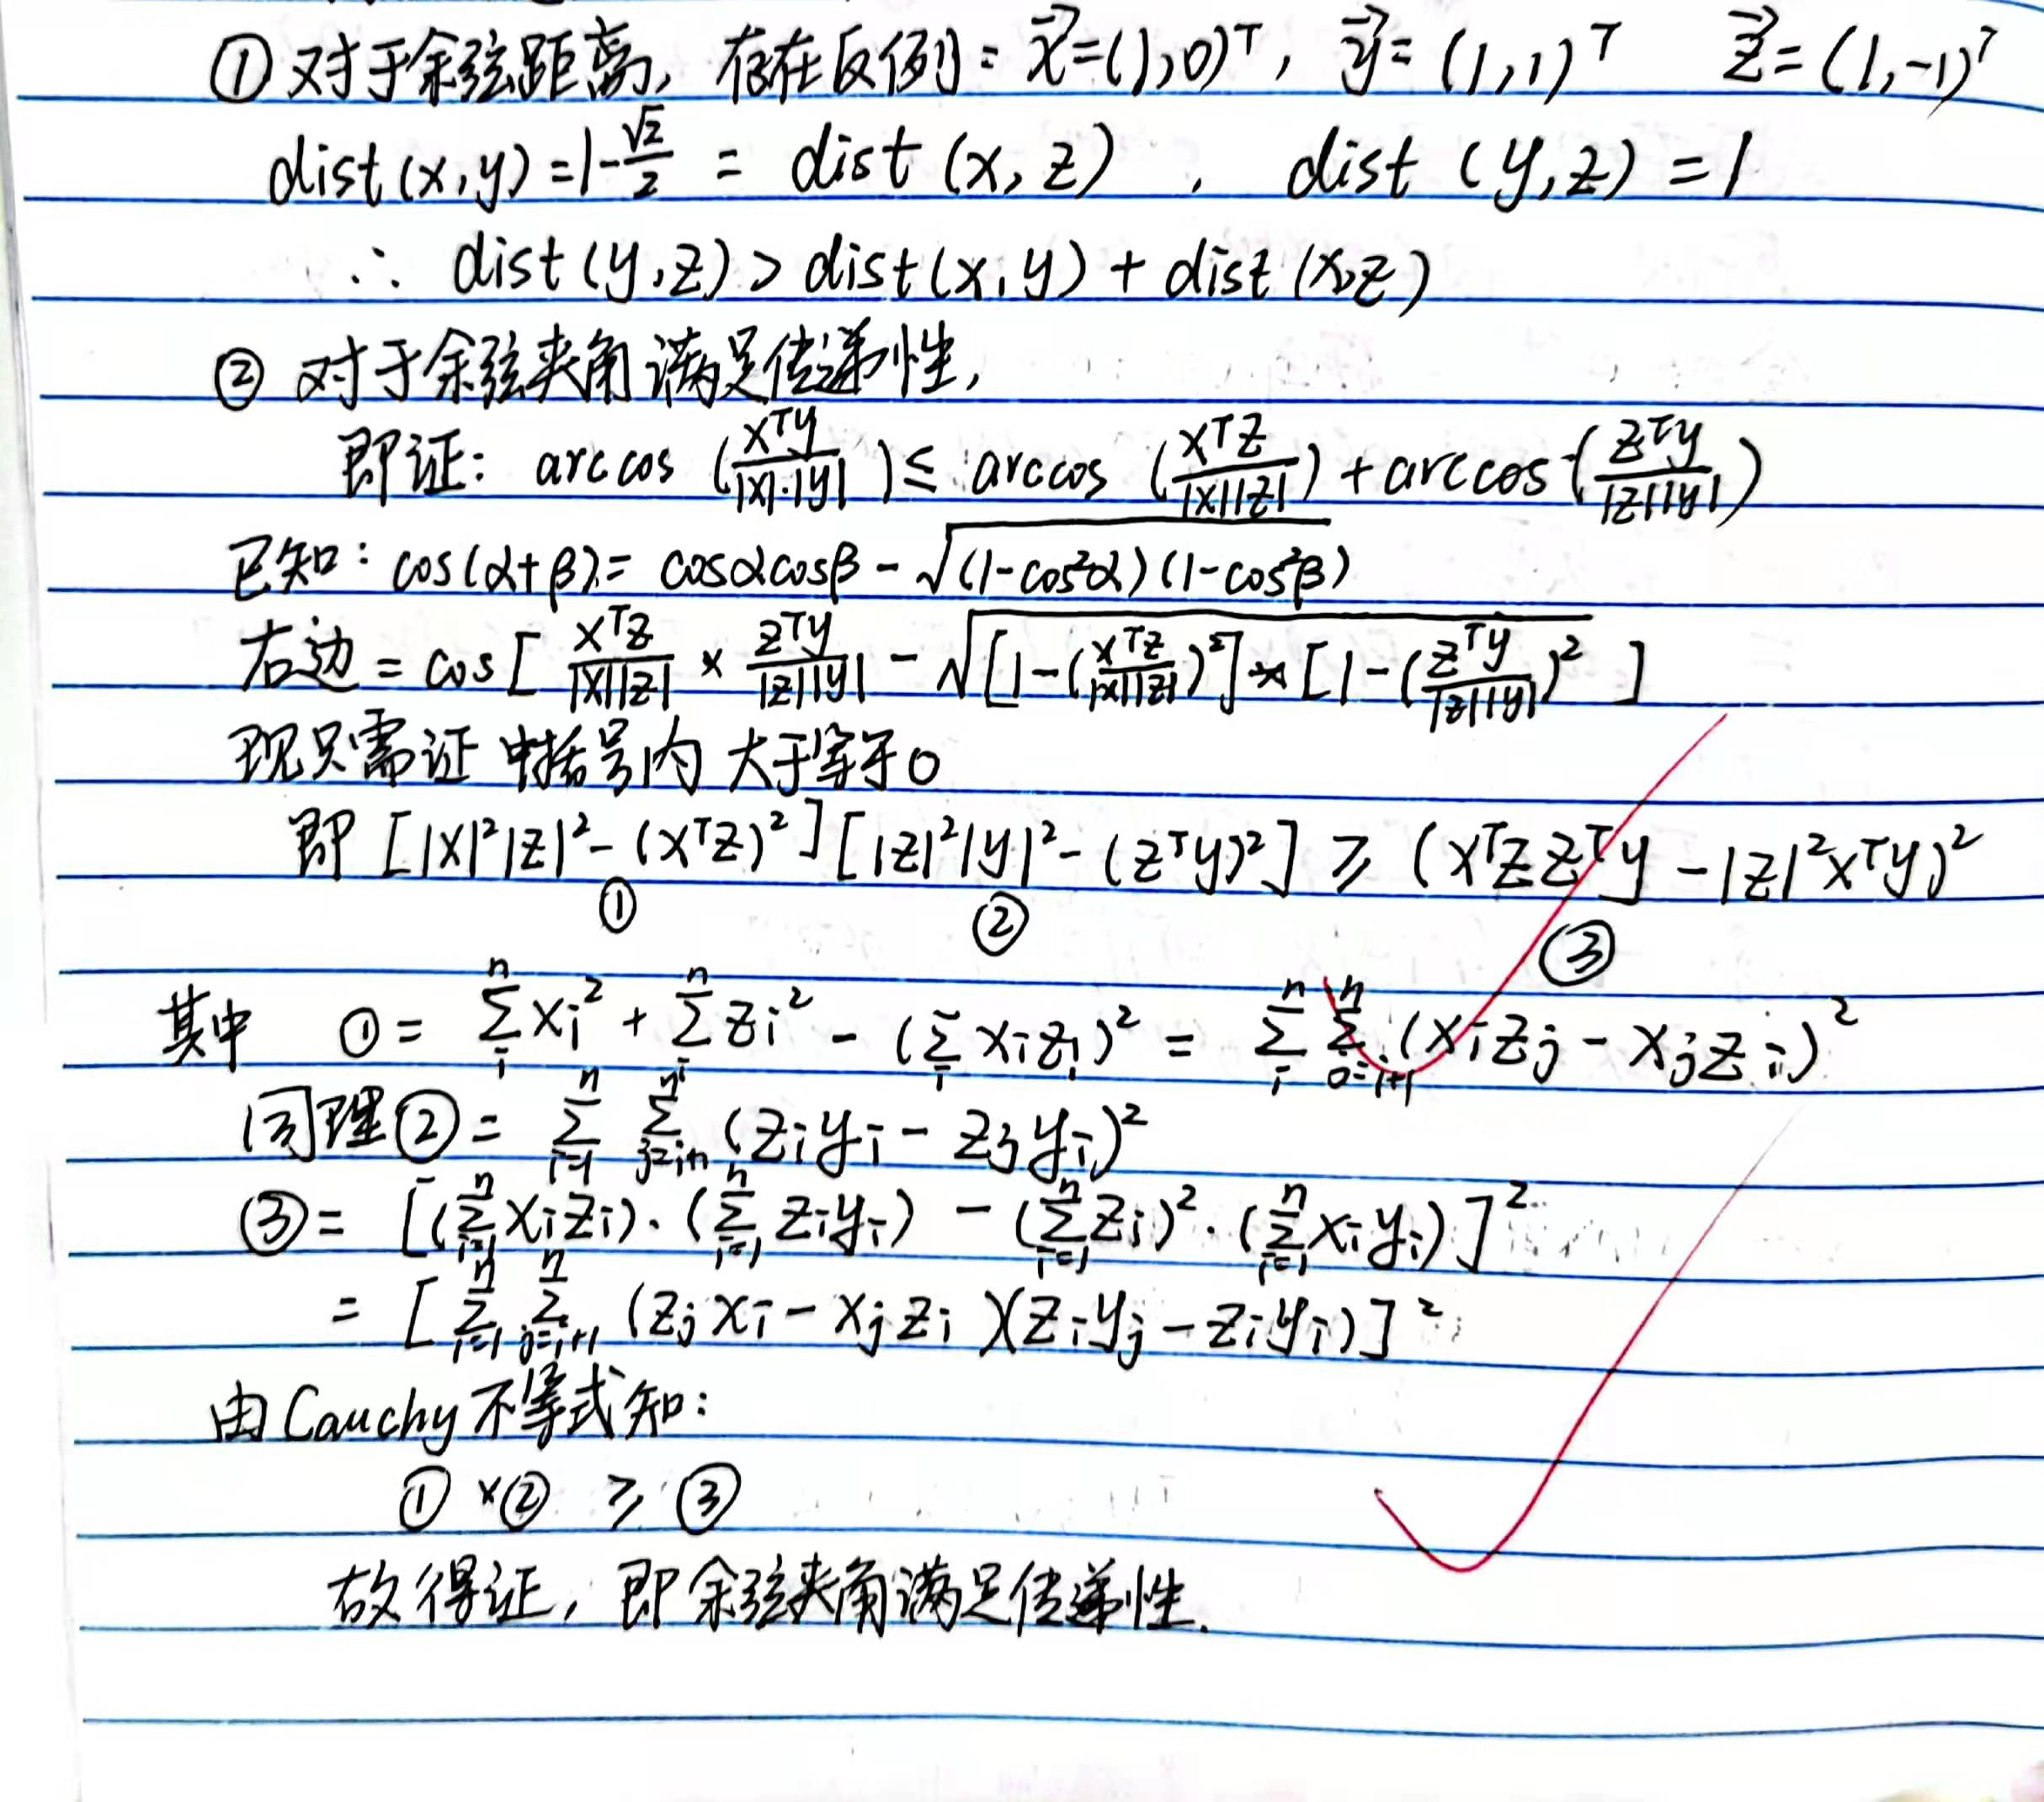 ① 对于余弦距离, 存在反例: x⃗=(1,0)ᵀ, y⃗=(1,1)ᵀ z⃗=(1,-1)ᵀ
dist(x,y)=1-√2/2 = dist(x,z) , dist(y,z)=1
∴ dist(y,z)>dist(x,y)+dist(x,z)
② 对于余弦夹角满足传递性,
即证: arccos(xᵀy/|x|·|y|)≤ arccos(xᵀz/|x||z|)+arccos(zᵀy/|z||y|)
已知: cos(α+β)= cosαcosβ-√(1-cos²α)(1-cos²β)
右边 = cos[xᵀz/|x||z| × zᵀy/|z||y| - √[1-(xᵀz/|x||z|)²]×[1-(zᵀy/|z||y|)²]
现只需证 中括号内 大于等于0
即 [|x|²|z|²-(xᵀz)²][|z|²|y|²-(zᵀy)²] ≥ (xᵀzzᵀy-|z|²xᵀy)²
① ② ③
其中 ①= Σᵢⁿ xᵢ² + Σᵢⁿ zᵢ² - (Σᵢ xᵢzᵢ)² = Σᵢⁿ Σⱼ₌ᵢ₊₁ⁿ (xᵢzⱼ-xⱼzᵢ)²
同理②= Σᵢ₌₁ⁿ Σⱼ₌ᵢ₊₁ⁿ (zᵢyᵢ-zⱼyᵢ)²
③= [(Σᵢ₌₁ⁿ xᵢzᵢ)·(Σᵢ₌₁ⁿ zᵢyᵢ) - (Σᵢ₌₁ⁿ zᵢ)²·(Σᵢ₌₁ⁿ xᵢyᵢ)]²
= [Σᵢ₌₁ⁿ Σⱼ₌ᵢ₊₁ⁿ (zⱼxᵢ-xⱼzᵢ)(zᵢyⱼ-zᵢyᵢ)]²
由Cauchy不等式知:
①×② ≥ ③
故得证, 即余弦夹角满足传递性.